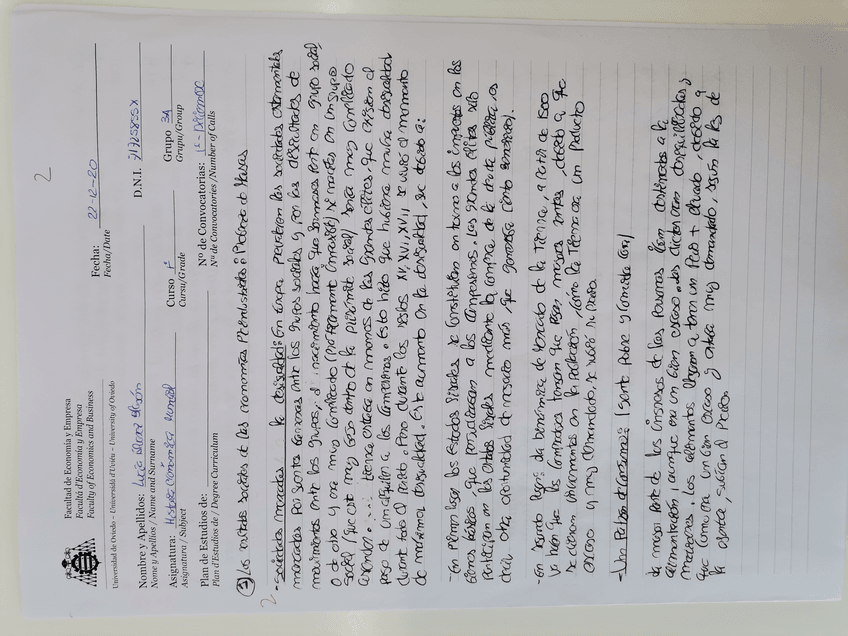 2
Facultad de Economía y Empresa
Facultá d'Economía y Empresa
Faculty of Economics and Business
Universidad de Oviedo – Universidá d'Uviéu – University of Oviedo
Fecha: 22-12-20
Fecha/Date
Nombre y Apellidos:
Nome y Apellíos / Name and Surname
D.N.I.
Asignatura: Historia Económica Mundial
Asignatura / Subject
Curso 1º
Cursu/Grade
Grupo 3A
Grupu/Group
Plan de Estudios de:
Plan d'Estudios de / Degree Curriculum
Nº de Convocatorias: 1ª - Diciembre
Nu de Convocatories/Number of Calls
③ Los rasgos sociales de las economías Preindustriales: Pobreza de Masas
2 - Sociedades marcadas la desigualdad: En Europa, persistían las sociedades estamentales
marcadas por fuertes barreras entre los grupos sociales y por las dificultades de
movimientos entre los grupos, el nacimiento hacía que formases parte un grupo social
o de otro y era muy complicado (prácticamente imposible) te nacías en un grupo
social (que esté muy bajo dentro de la pirámide social) sería muy complicado
ascender. Tierra estaba en manos de las grandes élites que exigían el
pago de un alquiler a los campesinos. Esto hizo que hubiera mucha desigualdad
durante todo el periodo. Pero durante los siglos XV, XVI, XVII se vivió el momento
de máxima desigualdad. Este aumento en la desigualdad, se debió a:
- En primer lugar los estados fiscales se constituían en torno a los impuestos en los
bienes básicos, que perjudicaban a los campesinos. Las grandes élites solo
participan en los estados fiscales mediante la compra de la deuda pública (es
decir, otra oportunidad de negocio más que generaba cierto beneficio).
- En segundo lugar: La dinámica de mercado de la Tierra, a partir de 1500
va hacer que los campesinos tengan que pagar mayores rentas, debido a que
se dieron incrementos en la población, como la Tierra es un producto
escaso y muy demandado, se subió su precio.
- Una Población de Carencias: (gente pobre y comida cara)
La mayor parte de los ingresos de las personas iban destinados a la
alimentación, aunque era un bien escaso. Las dietas eran desequilibradas y
mediocres. Los alimentos llegan a tener un precio + elevado, debido a
que como era un bien escaso y estaba muy demandado, según la ley de
la oferta, subirían el precio.